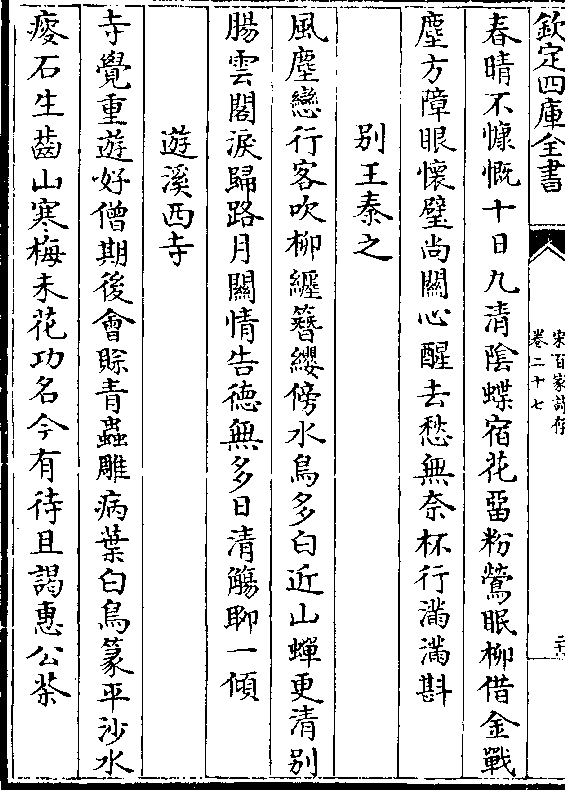 欽定四庫全書
宋百家詩存
卷二十七
二十
春晴不慷慨十日九清陰蝶宿花留粉鶯眠柳借金戰
塵方障眼懷璧尚關心醒去愁無奈杯行滿滿斟
别王秦之
風塵戀行客吹柳纒簪纓傍水鳥多白近山蟬更清别
腸雲閣淚歸路月關情告德無多日清觴聊一傾
遊溪西寺
寺覺重遊好僧期後會賒青蟲雕病葉白鳥篆平沙水
瘦石生齒山寒梅未花功名今有待且謁惠公茶